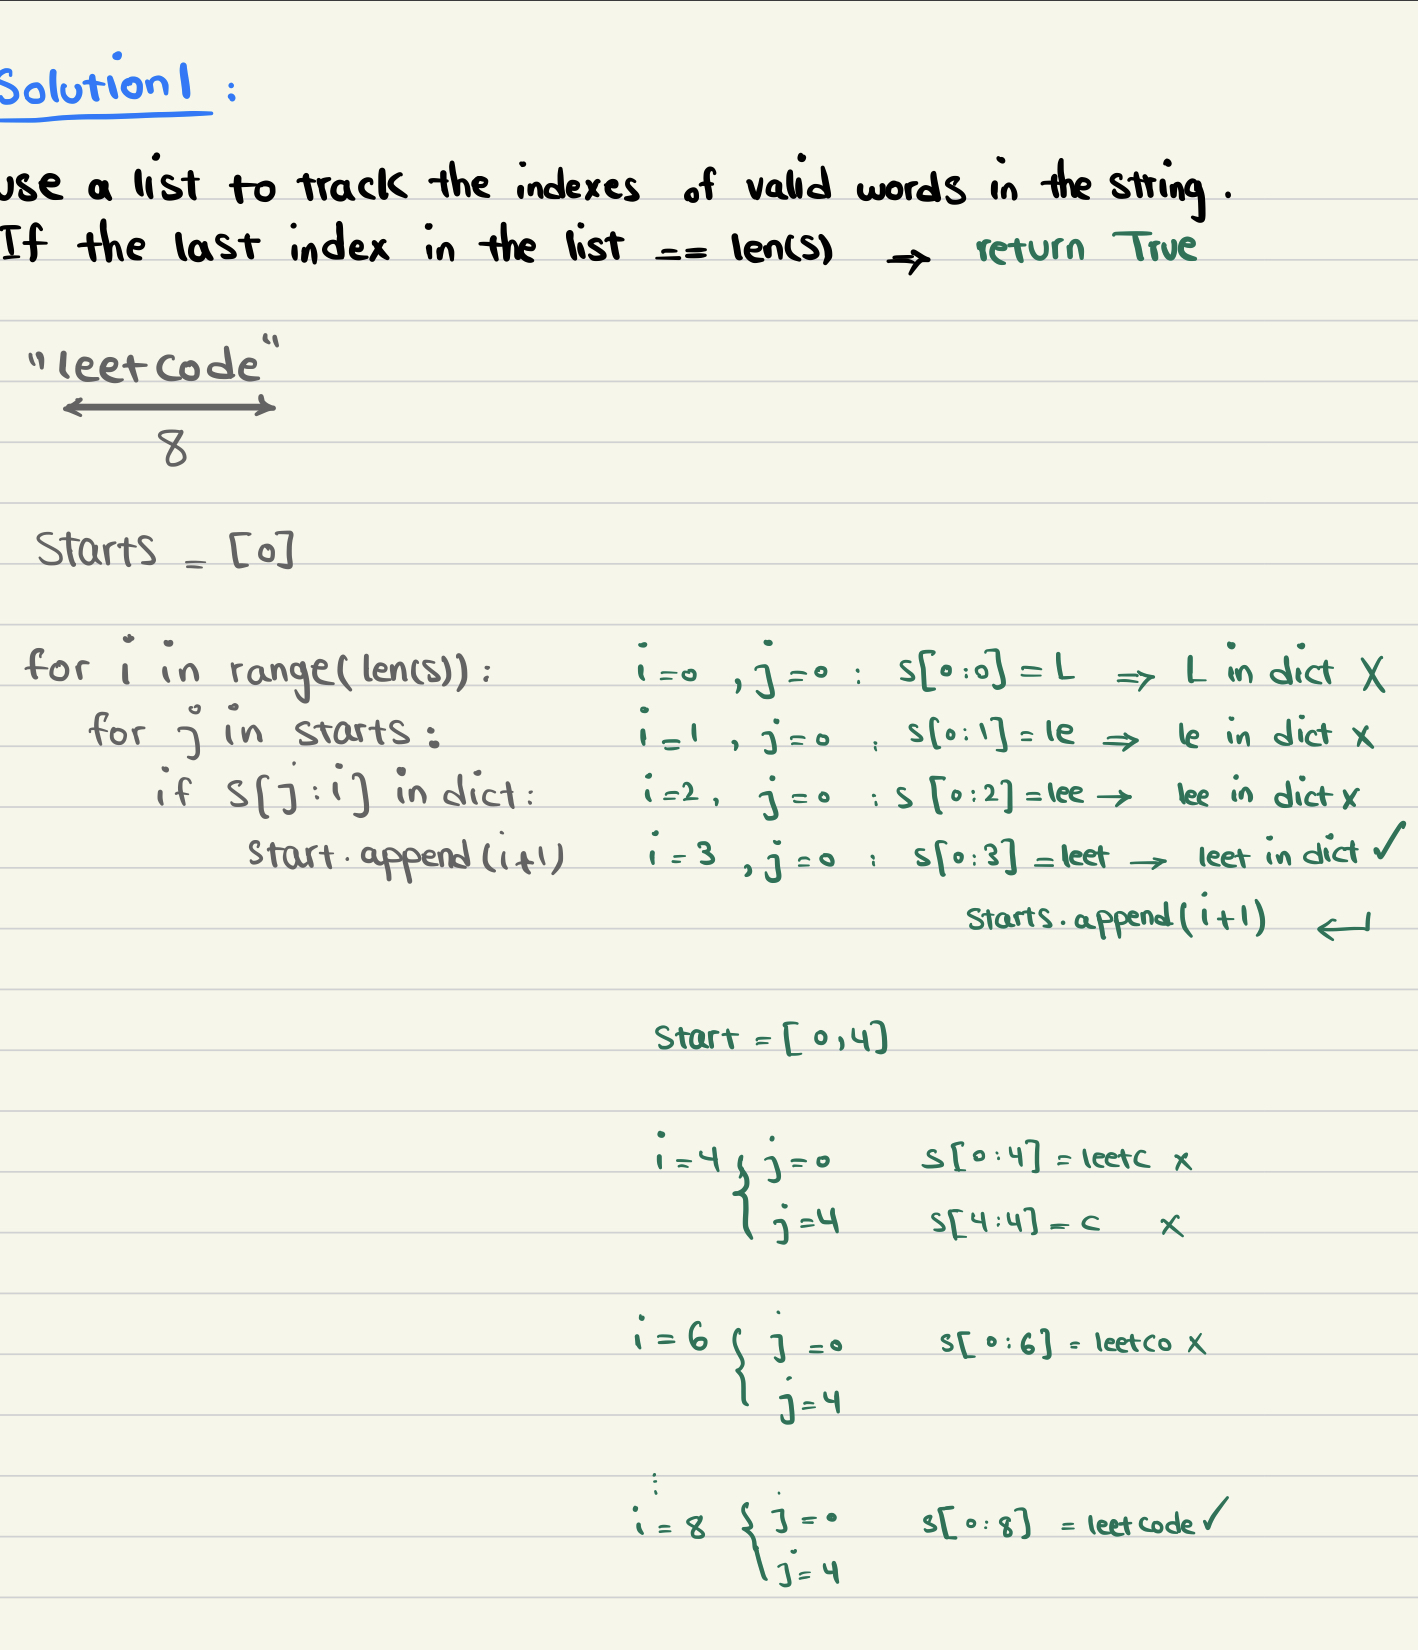 Solution 1 :
use a list to track the indexes of valid words in the string.
If the last index in the list == len(s) → return True
"leetcode"
8
Starts = [0]
for i in range(len(s)):
for j in starts:
if s[j:i] in dict:
start.append(i+1)
i=0 , j=0 : s[0:0] = L ⇒ L in dict X
i=1 , j=0 : s[0:1] = le ⇒ le in dict x
i=2, j=0 : s[0:2] = lee → lee in dict x
i=3 , j=0 : s[0:3] = leet → leet in dict ✓
starts.append(i+1) ↵
Start = [0,4]
i=4 { j=0 s[0:4] = leetc x
j=4 s[4:4] = c x
i=6 { j=0 s[0:6] = leetco x
j=4
⋮
i=8 { j=0 s[0:8] = leetcode ✓
j=4